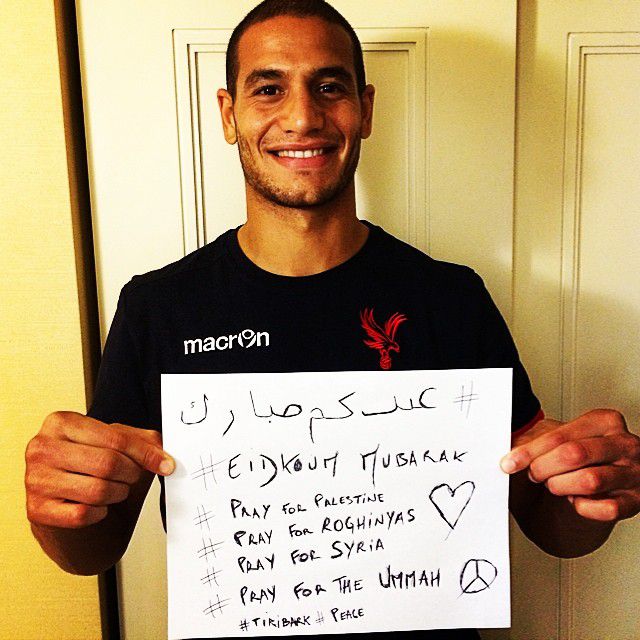 macron
# عيدكم مبارك
# EIDKOUM MUBARAK
# PRAY FOR PALESTINE
# PRAY FOR ROGHINYAS
# PRAY FOR SYRIA
# PRAY FOR THE UMMAH
#TIRIBARK # PEACE